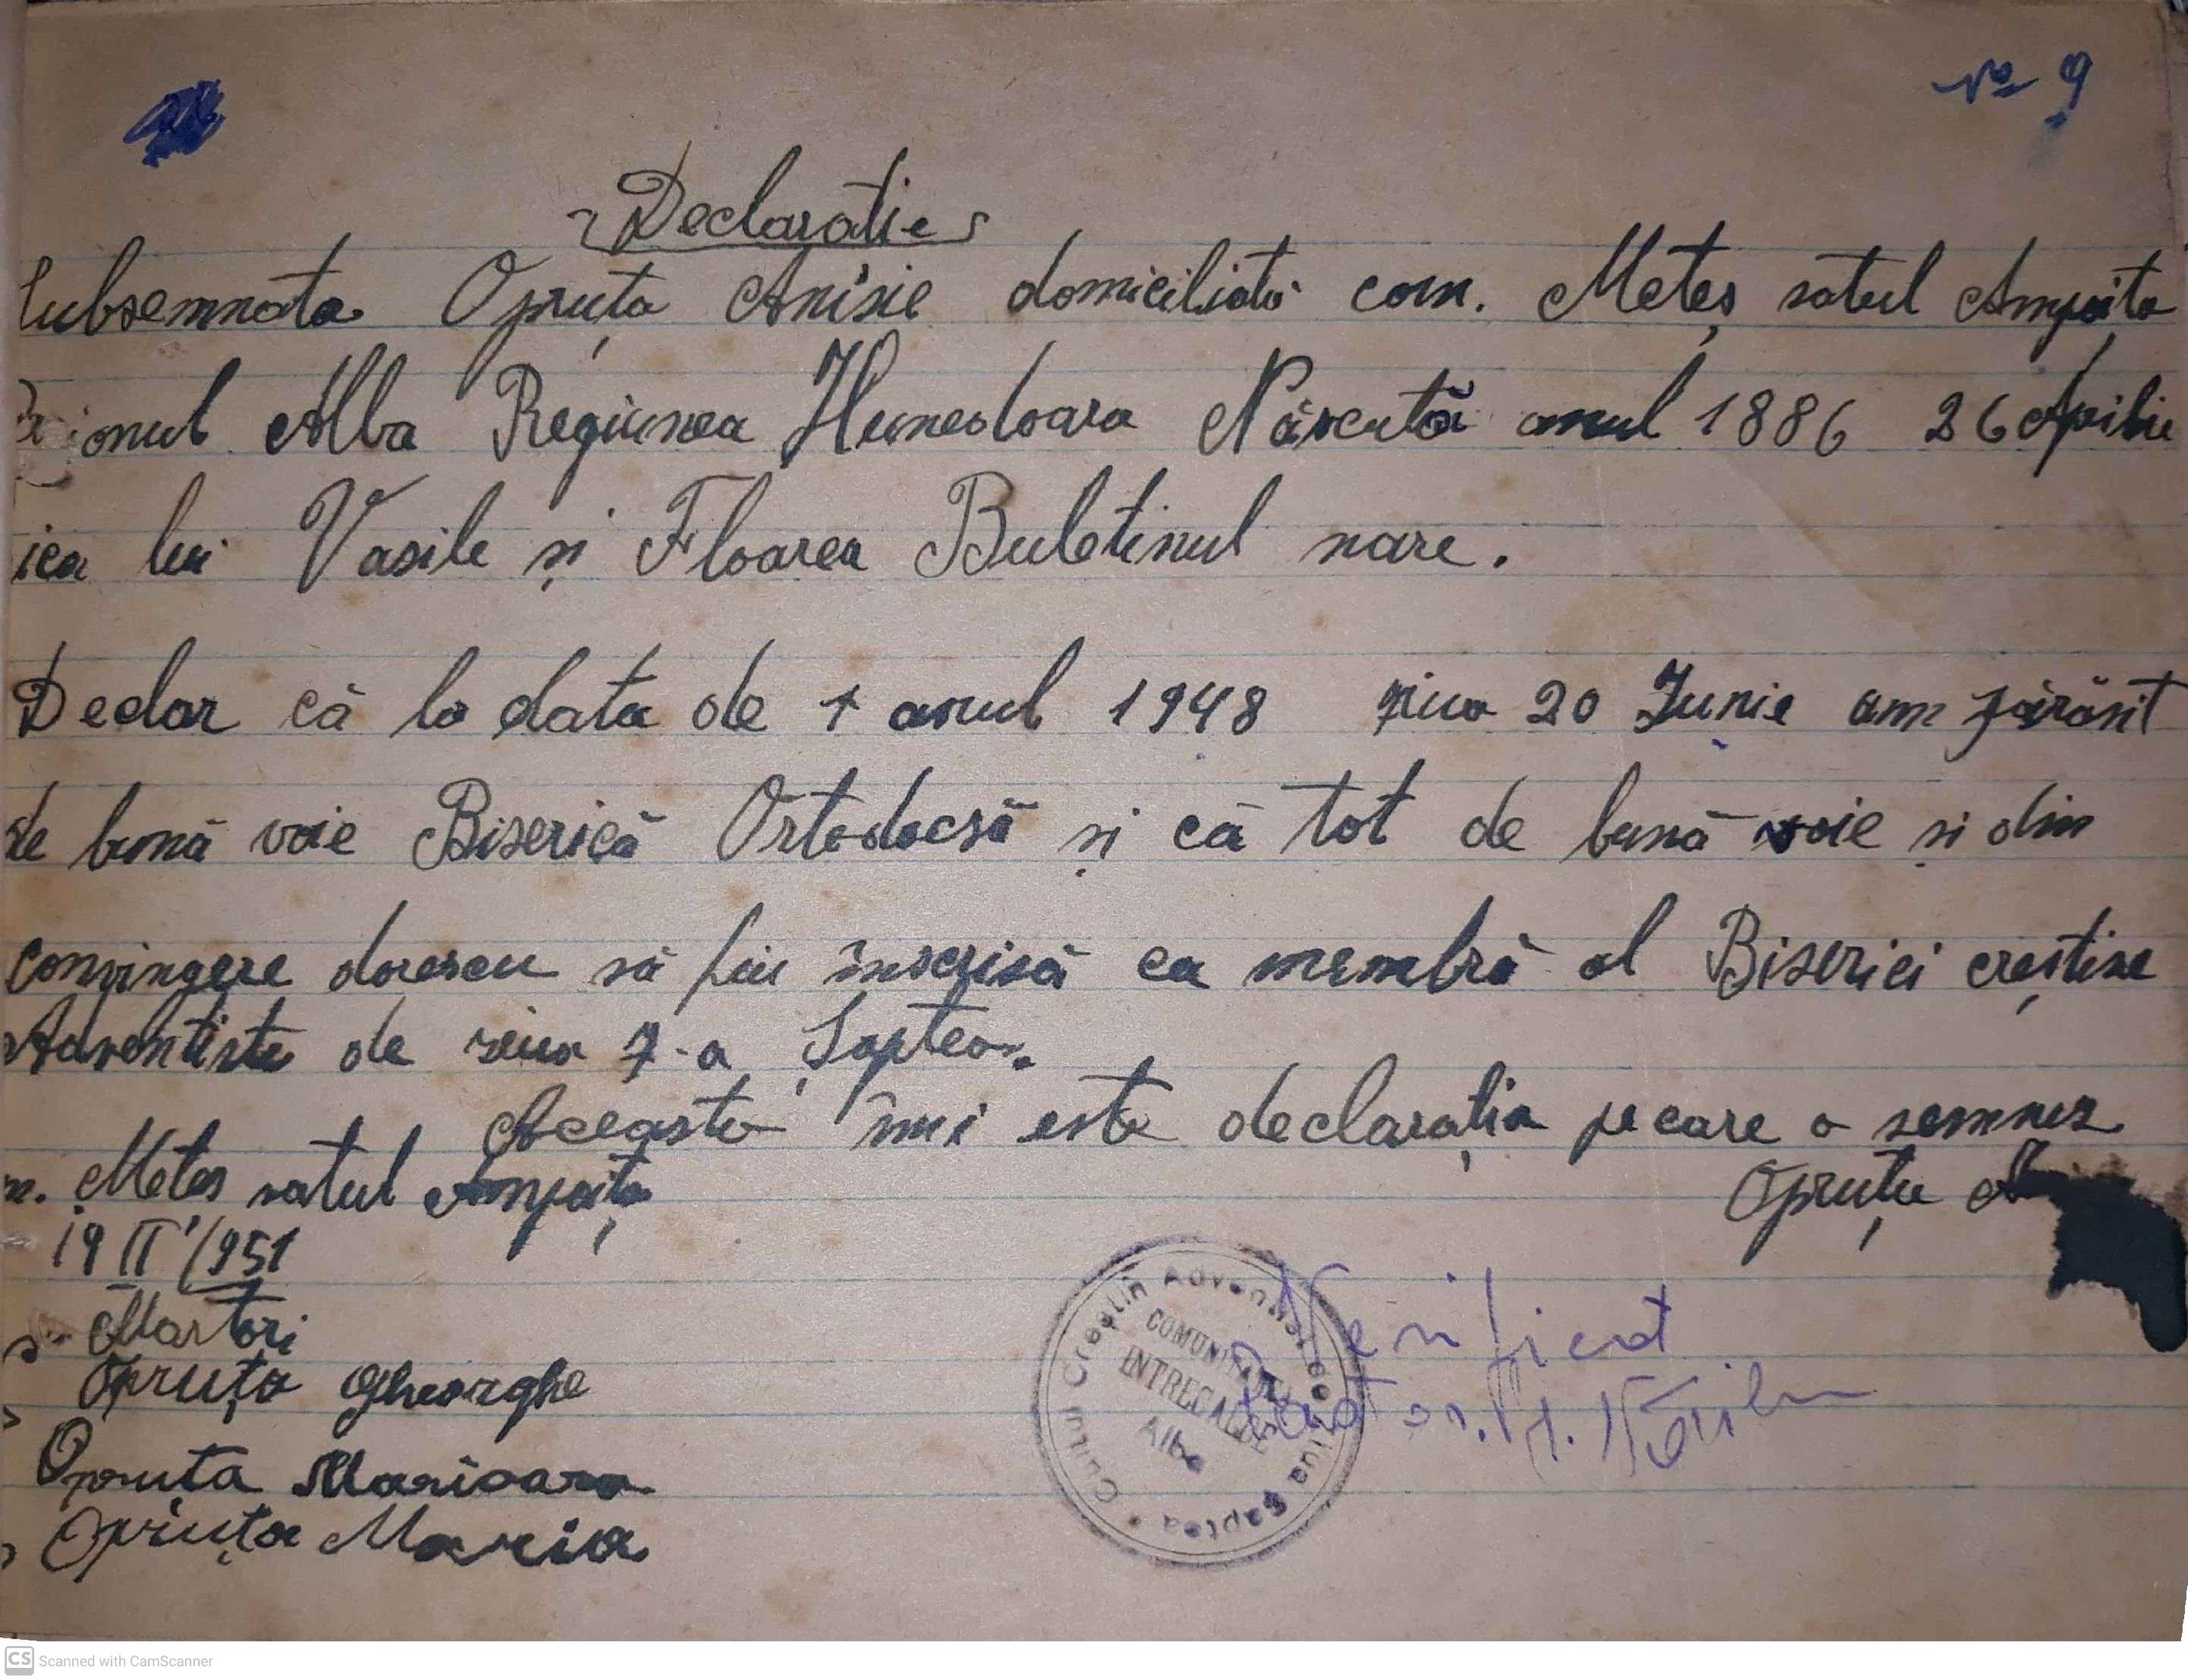 No 9
Declarație
Subsemnata Opruța Anisie domiciliată com. Meteș satul Ampoița
Raionul Alba Regiunea Hunedoara Născută anul 1886 26 Aprilie
ica lui Vasile și Floarea Buletinul nare.
Declar că la data de 1 anul 1948 ziua 20 Iunie am părăsit
de bună voie Biserică Ortodocsă și că tot de bună voie și din
convingere dorescu să fiu înscrisă ca membră al Biserici creștine
Adventiste de ziua 7-a Șaptea.
Aceasta îmi este declarația pe care o semnez
m. Meteș satul Ampoița
Opruța A
19 II 1951
Martori
Opruța Gheorghe
Opruta Marioara
Opruța Maria
Cultul Creștin Adventist de Ziua Șaptea
COMUNITATEA
INTREGALDE
Alba
Verificat
CS Scanned with CamScanner